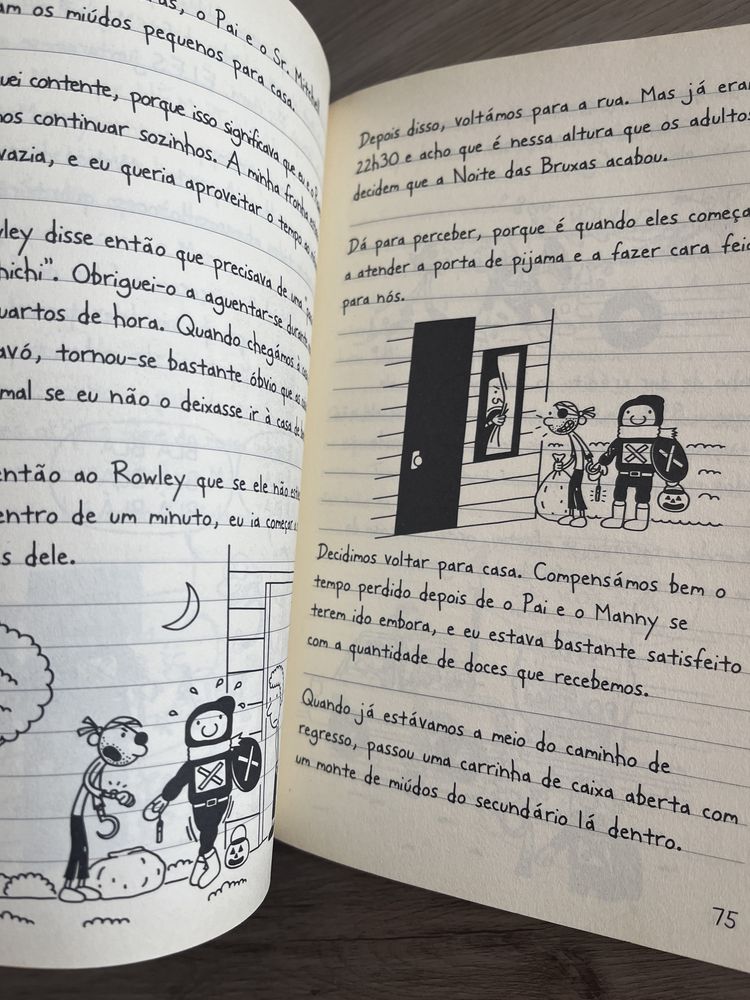 o Pai e o Sr.
am os miúdos pequenos para casa.
uei contente, porque isso significava que eu e o
nos continuar sozinhos. A minha fronha
vazia, e eu queria aproveitar o tempo ao
ley disse então que precisava de uma
hichi". Obriguei-o a aguentar-se
uartos de hora. Quando chegámos à
avó, tornou-se bastante óbvio que as
mal se eu não o deixasse ir à casa de
então ao Rowley que se ele não
entro de um minuto, eu ia começar
s dele.
Depois disso, voltámos para a rua. Mas já eram
22h30 e acho que é nessa altura que os adultos
decidem que a Noite das Bruxas acabou.
Dá para perceber, porque é quando eles começa
a atender a porta de pijama e a fazer cara feia
para nós.
Decidimos voltar para casa. Compensámos bem o
tempo perdido depois de o Pai e o Manny se
terem ido embora, e eu estava bastante satisfeito
com a quantidade de doces que recebemos.
Quando já estávamos a meio do caminho de
regresso, passou uma carrinha de caixa aberta com
um monte de miúdos do secundário lá dentro.
75